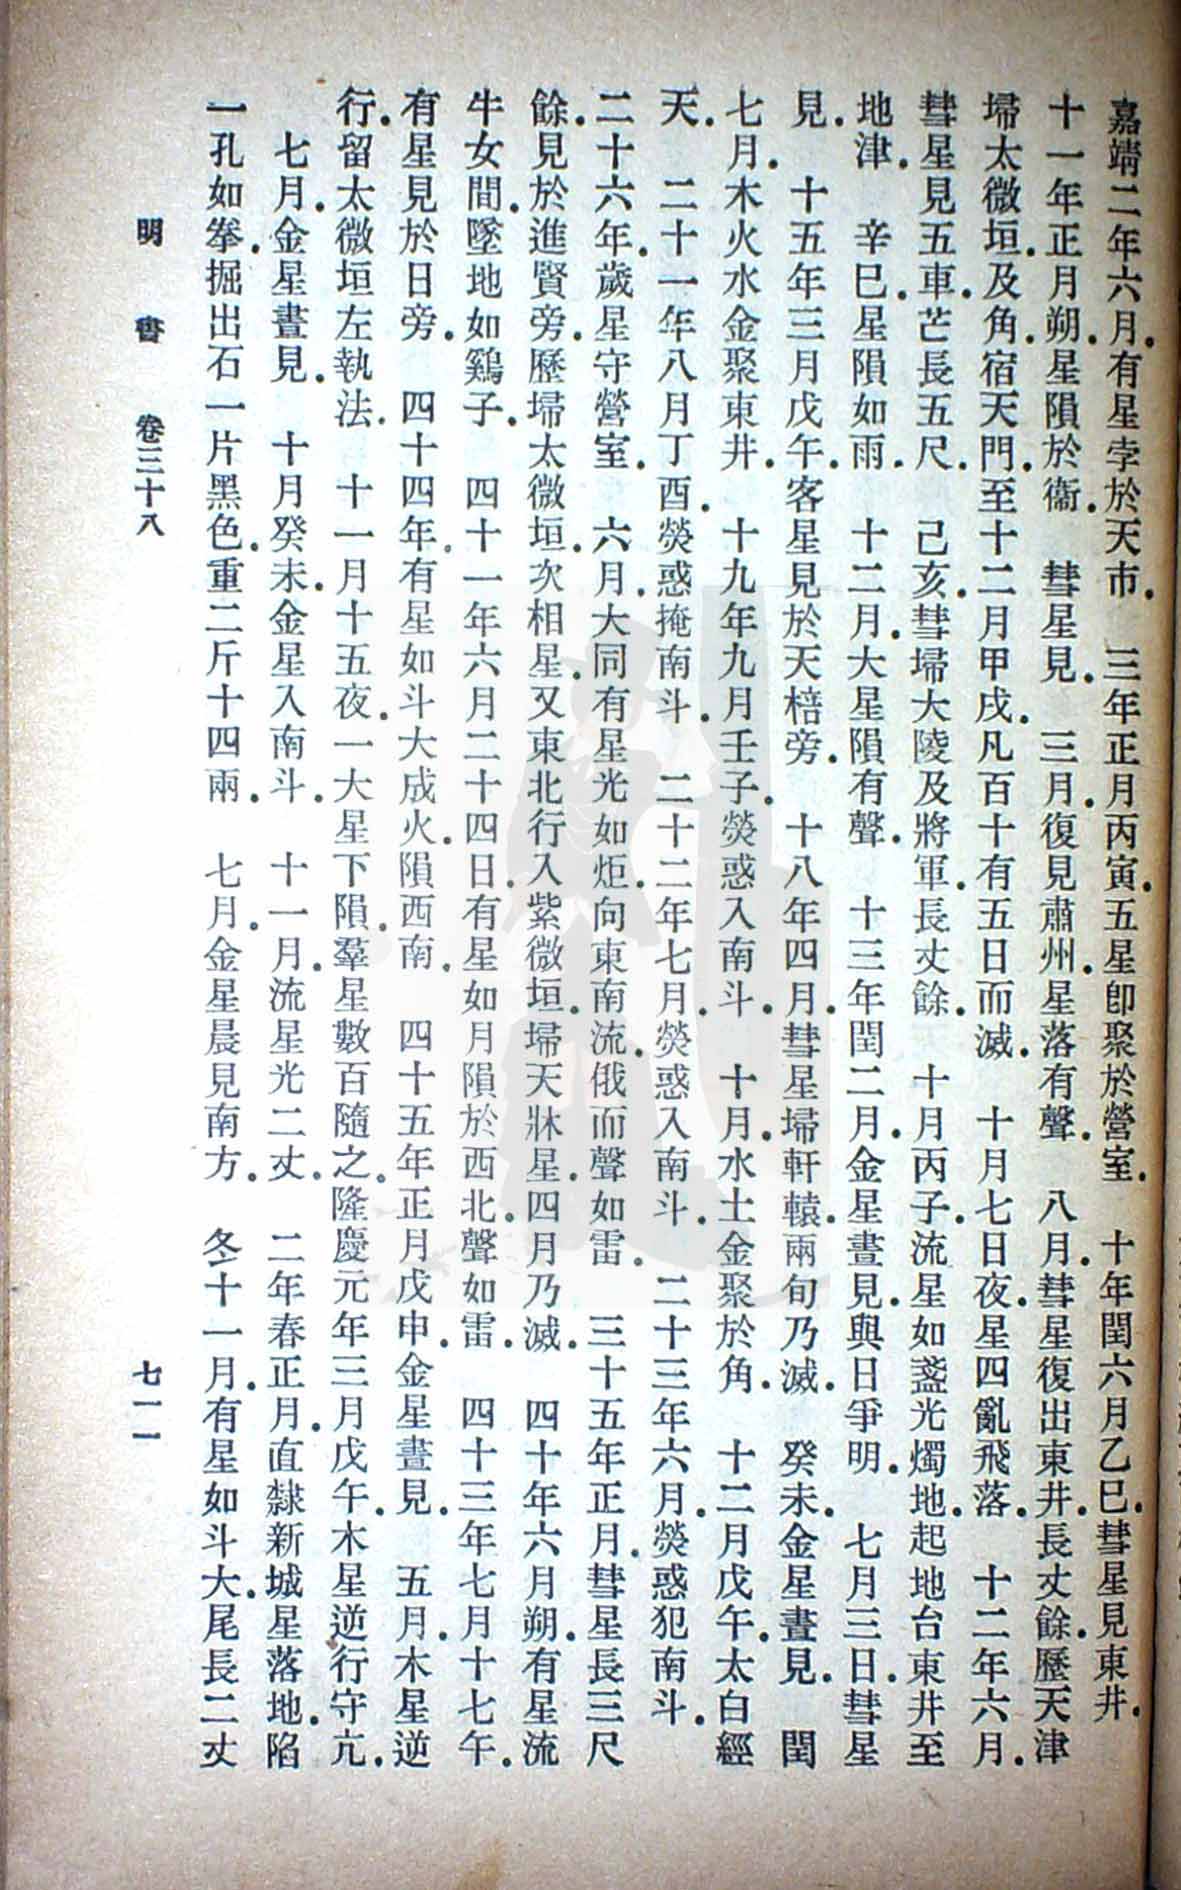 嘉靖二年六月．有星孛於天市．　三年正月丙寅．五星卽聚於營室．　十年閏六月乙巳．彗星見東井．
十一年正月朔．星隕於衞．　彗星見．　三月．復見肅州．星落有聲．　八月．彗星復出東井．長丈餘．歷天津
埽太微垣．及角．宿天門．至十二月甲戌．凡百十有五日而滅．　十月七日夜．星四亂飛落．　十二年六月．
彗星見五車．芒長五尺．　己亥．彗埽大陵及將軍．長丈餘．　十月丙子．流星如盞．光燭地．起地台東井至
地津．　辛巳．星隕如雨．　十二月．大星隕有聲．　十三年閏二月．金星晝見．與日爭明．　七月三日．彗星
見．　十五年三月戊午．客星見於天棓旁．　十八年四月．彗星埽軒轅．兩旬乃滅．　癸未．金星晝見．　閏
七月．木火水金聚東井．　十九年九月壬子．熒惑入南斗．　十月．水土金聚於角．　十二月戊午．太白經
天．　二十一年八月丁酉．熒惑掩南斗．　二十二年七月．熒惑入南斗．　二十三年六月．熒惑犯南斗．
二十六年．歲星守營室．　六月．大同有星光如炬．向東南流．俄而聲如雷．　三十五年正月．彗星長三尺
餘．見於進賢旁．歷埽太微垣．次相星．又東北行入紫微垣．埽天牀星．四月乃滅．　四十年六月朔．有星流
牛女間．墜地如鷄子．　四十一年六月二十四日．有星如月隕於西北．聲如雷．　四十三年七月十七午．
有星見於日旁．　四十四年．有星如斗大成火．隕西南．　四十五年正月戊申．金星晝見．　五月．木星逆
行．留太微垣左執法．　十一月十五夜．一大星下隕．羣星數百隨之．隆慶元年三月戊午．木星逆行守亢．
七月．金星晝見．　十月癸未．金星入南斗．　十一月．流星光二丈．　二年春正月．直隸新城星落地．陷
一孔如拳．掘出石一片黑色．重二斤十四兩．　七月．金星晨見南方．　冬十一月．有星如斗大．尾長二丈
明書　卷三十八　七一一